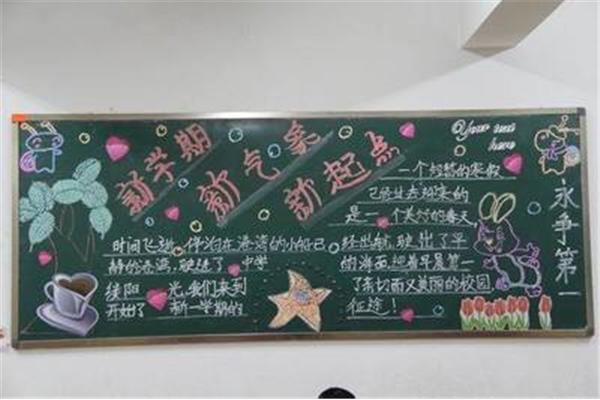 新学期
新气象
新起点
Your text
here
永争第一
一个短暂的寒假
已经过去 迎来的
是一个美好的春天
时间飞逝 停泊在港湾的小船已
静的港湾,驶进了 中学
开始了 新一学期的
光,我们来到
经出航,驶出了平
的海面,迎着早晨第一
了亲切而又美丽的校园
征途!